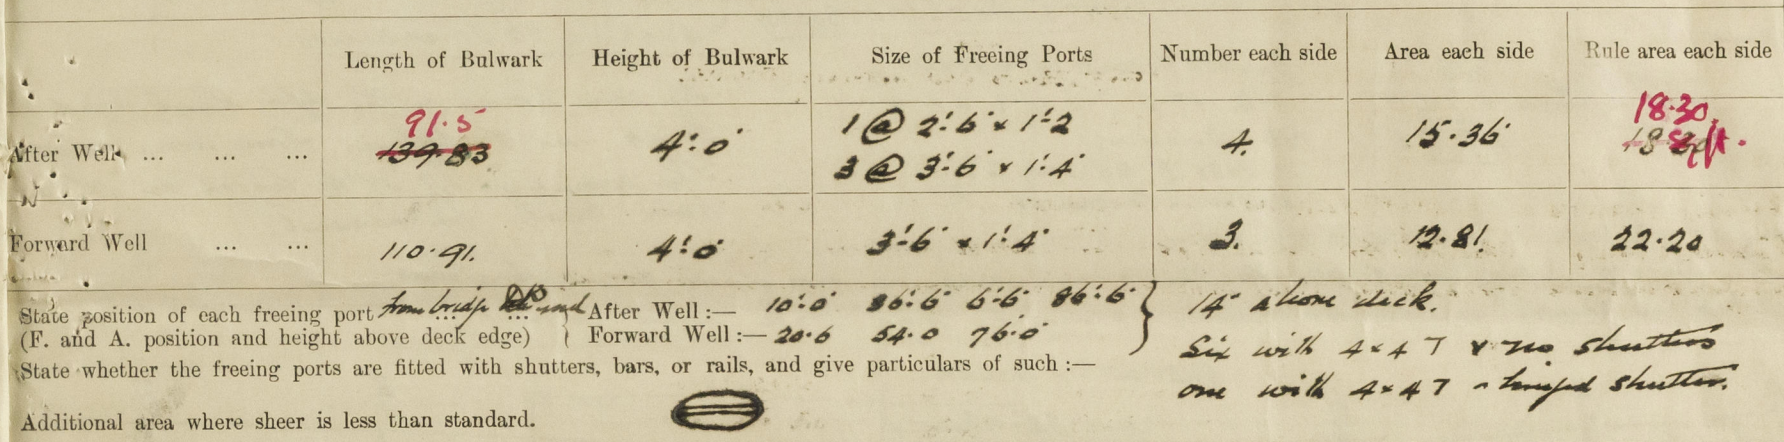 Length of Bulwark Height of Bulwark Size of Freeing Ports Number each side Area each side Rule area each side
91·5 18·30
1 @ 2'·6" × 1'·2
After Well ... ... ... 139·83 4'·0" 4. 15·36 sq ft.
3 @ 3'·6" × 1'·4"
Forward Well ... ... 110·91. 4'·0" 3'·6" × 1'·4" 3. 12·81. 22·20
State position of each freeing port from bridge end After Well :— 10'·0" 36'·6" 6'·6" 86'·6" } 14" above deck.
(F. and A. position and height above deck edge) Forward Well :— 20·6 54·0 76·0"
Six with 4×4 T & no shutters
State whether the freeing ports are fitted with shutters, bars, or rails, and give particulars of such :—
one with 4×4 T hinged shutter.
Additional area where sheer is less than standard.